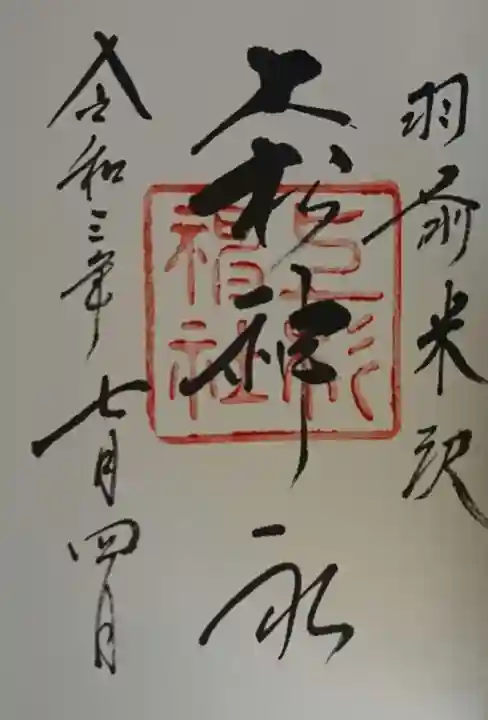 羽前米沢
上杉神社
上杉
神社
令和三年七月四日